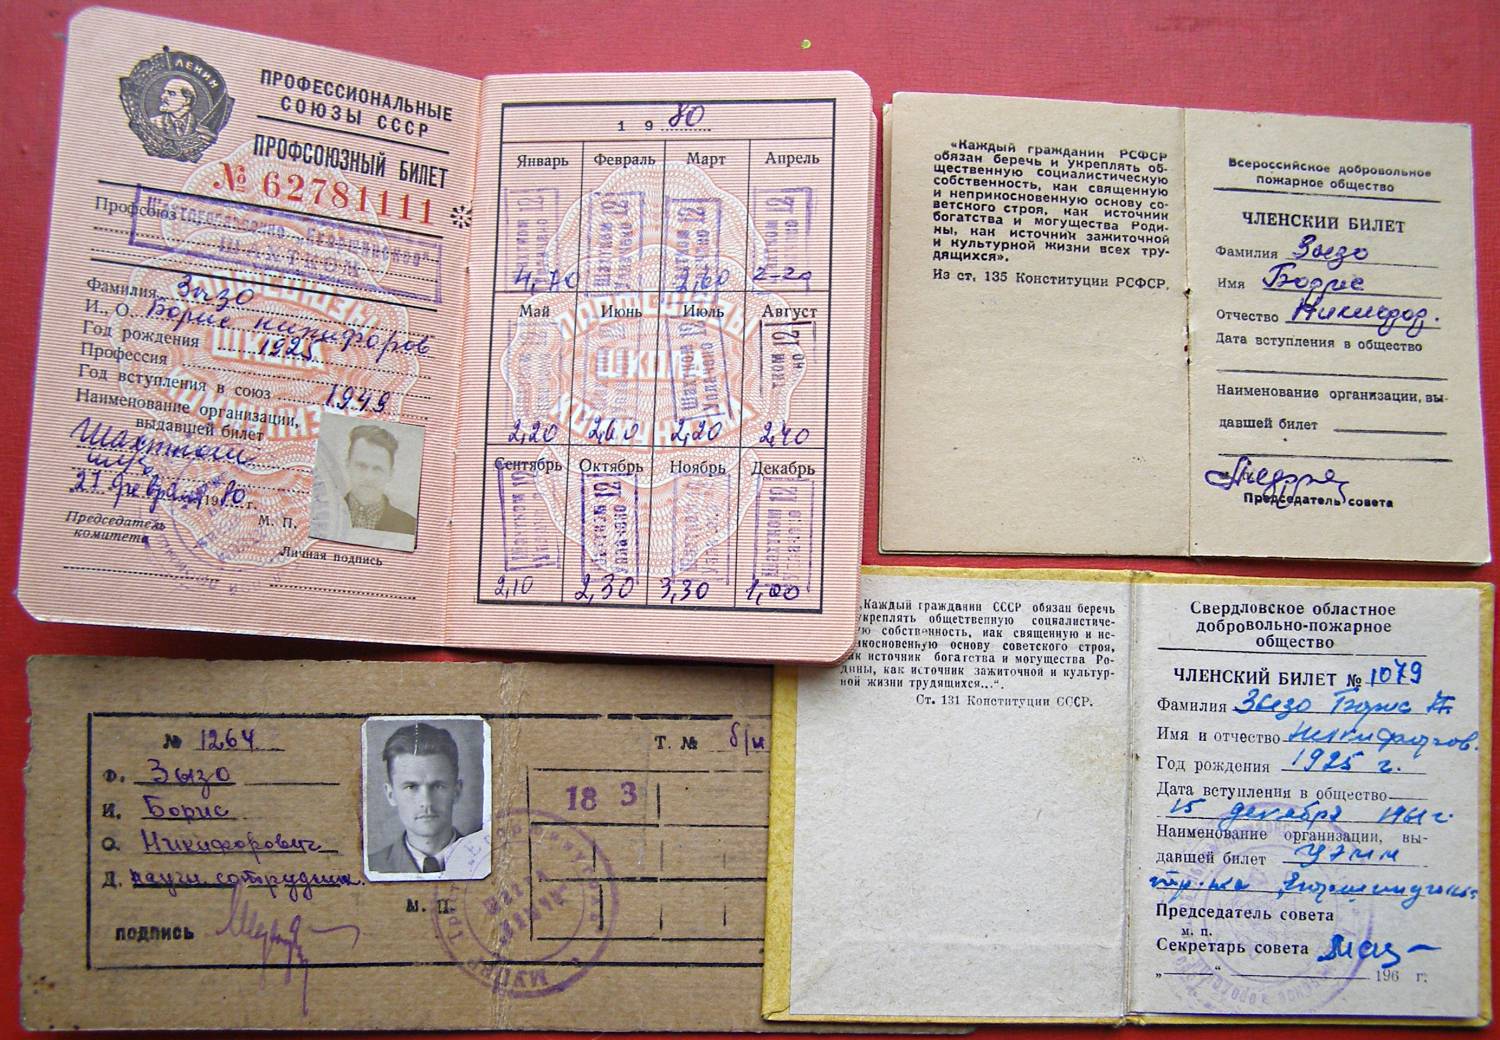 ЛЕНИН
ПРОФЕССИОНАЛЬНЫЕ
СОЮЗЫ СССР
ПРОФСОЮЗНЫЙ БИЛЕТ
№ 62781111
Профсоюз
Фамилия Зызо
И., О. Борис Никифоров
Год рождения 1925
Профессия
Год вступления в союз 1949
Наименование организации,
выдавшей билет
27 февраля 1980 г.
М. П.
Председатель
комитета
Личная подпись
1980
Январь Февраль Март Апрель
4,70 2,60 2-29
Май Июнь Июль Август
2,20 2,60 2,20 2,40
Сентябрь Октябрь Ноябрь Декабрь
2,10 2,30 3,30 1,00
«Каждый гражданин РСФСР
обязан беречь и укреплять об-
щественную социалистическую
собственность, как священную
и неприкосновенную основу со-
ветского строя, как источник
богатства и могущества Роди-
ны, как источник зажиточной
и культурной жизни всех тру-
дящихся».
Из ст. 135 Конституции РСФСР.
Всероссийское добровольное
пожарное общество
ЧЛЕНСКИЙ БИЛЕТ
Фамилия Зызо
Имя Борис
Отчество Никифор.
Дата вступления в общество
Наименование организации, вы-
давшей билет
Председатель совета
№ 1264
Т. № б/н
Ф. Зызо
И. Борис
О. Никифорович
Д. научн. сотрудник.
18 3
М. П.
подпись
„Каждый гражданин СССР обязан беречь
укреплять общественную социалистиче-
ую собственность, иак священную и не-
рикосновенную основу советского строя,
ак источник богатства и могущества Ро-
дины, как источник зажиточной и культур-
ной жизни трудящихся...“.
Ст. 131 Конституции СССР.
Свердловское областное
добровольно-пожарное
общество
ЧЛЕНСКИЙ БИЛЕТ № 1079
Фамилия Зызо Борис Н.
Имя и отчество Никифоров.
Год рождения 1925 г.
Дата вступления в общество
15 декабря 1961 г.
Наименование организации, вы-
давшей билет
Председатель совета
м. п.
Секретарь совета
„ “ 196 г.